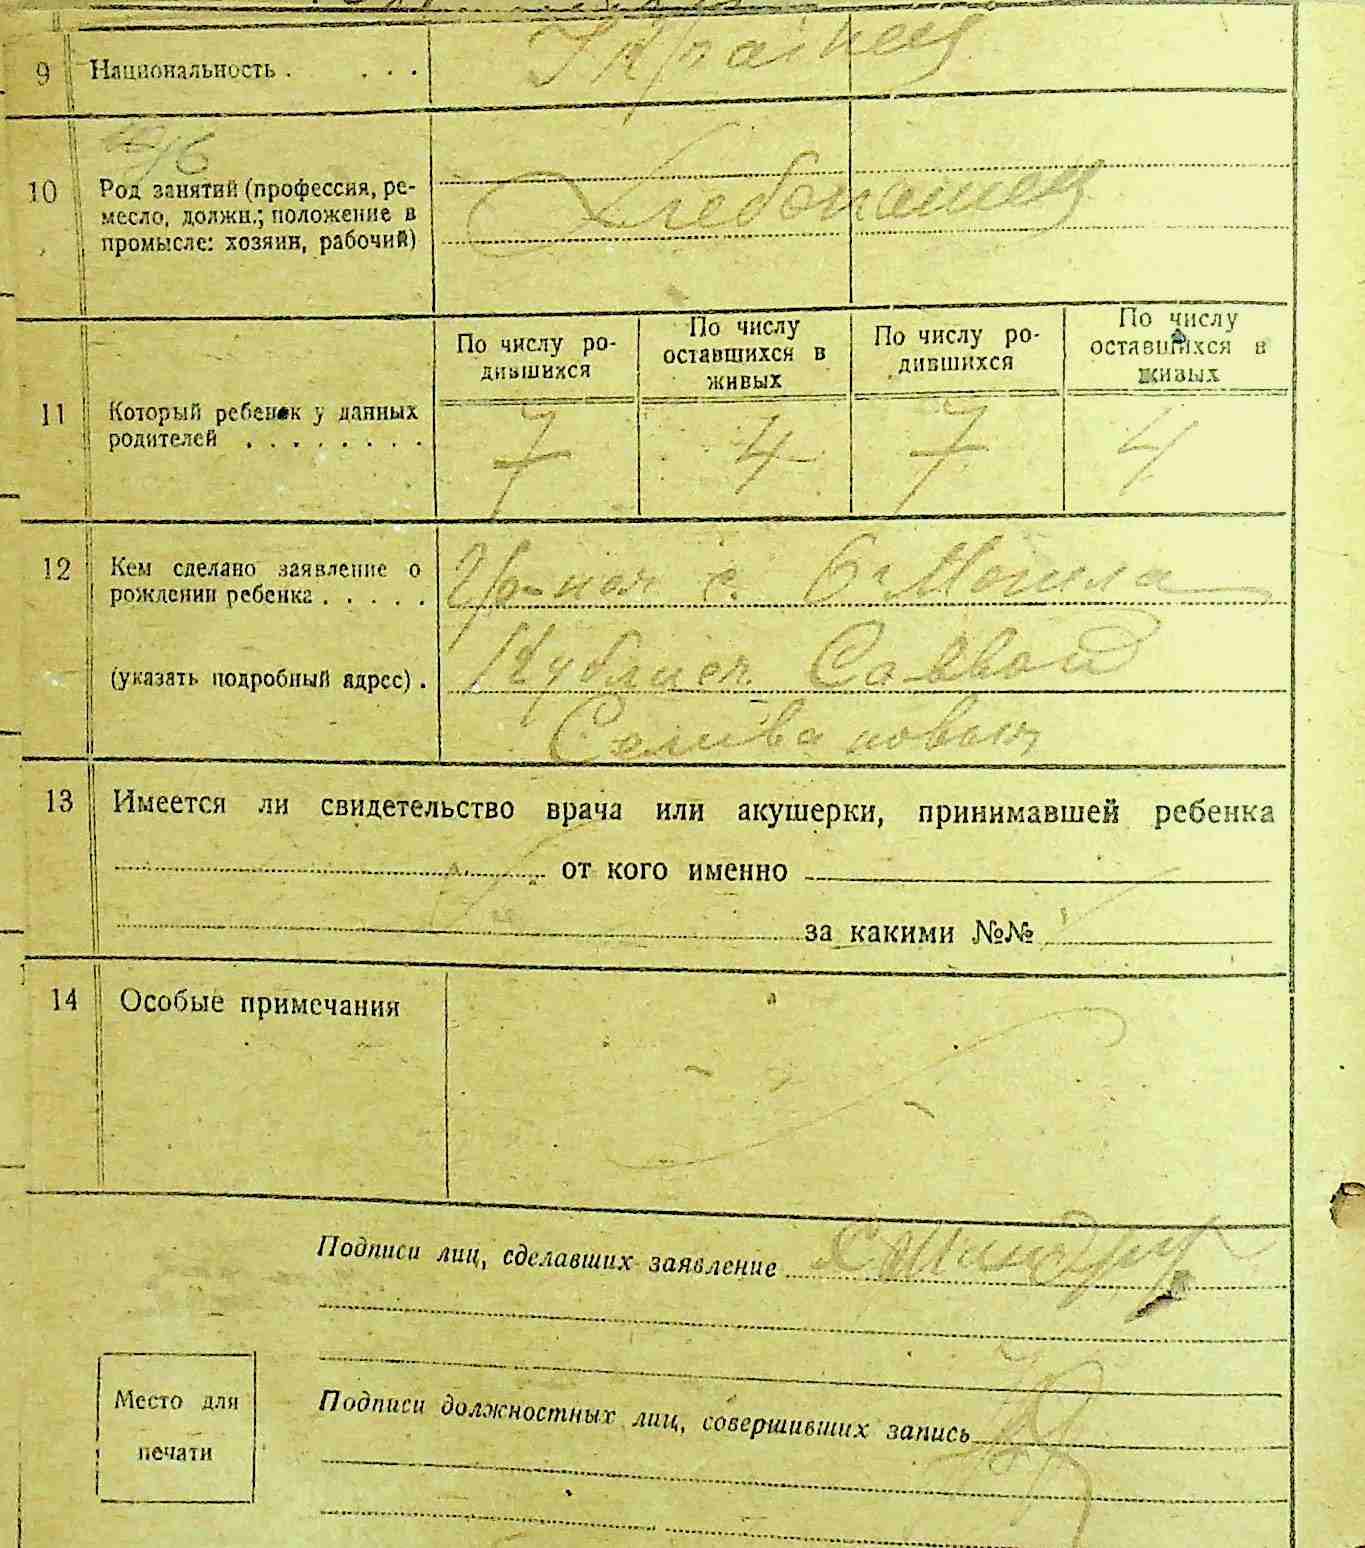 9 Национальность . . . . Украинец
10 Род занятий (профессия, ре-
месло, должн.; положение в
промысле: хозяин, рабочий)
Хлебопашец
По числу ро-
дившихся
По числу
оставшихся в
живых
По числу ро-
дившихся
По числу
оставшихся в
живых
11 Который ребенок у данных
родителей . . . . . . . .
7 4 7 4
12 Кем сделано заявление о
рождении ребенка . . . . .
Гр-ном с. Могила
(указать подробный адрес) .
Саввой
Селивановым
13 Имеется ли свидетельство врача или акушерки, принимавшей ребенка
от кого именно
за какими №№
14 Особые примечания
Подписи лиц, сделавших заявление
Место для
печати
Подписи должностных лиц, совершивших запись